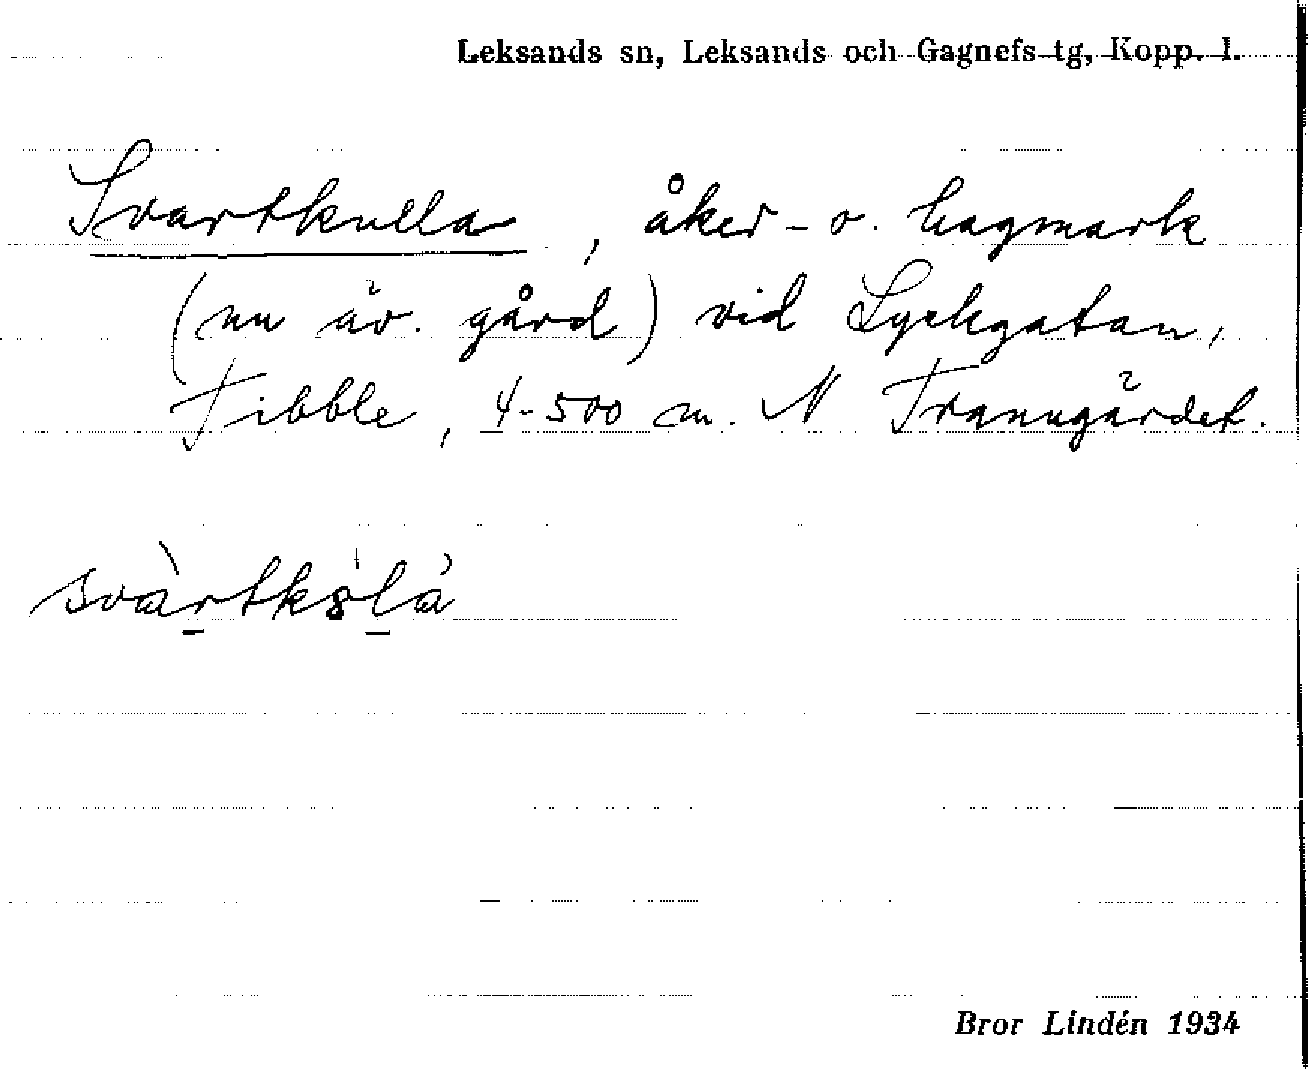 Leksands sn, Leksands och Gagnefs tg, Kopp. l.
Svartkulla, åker- o. hagmark
(nu äv. gård) vid Lyckgatan,
Tibble, 4-500 m. N Tranugärdet.
Bror Lindén 1934